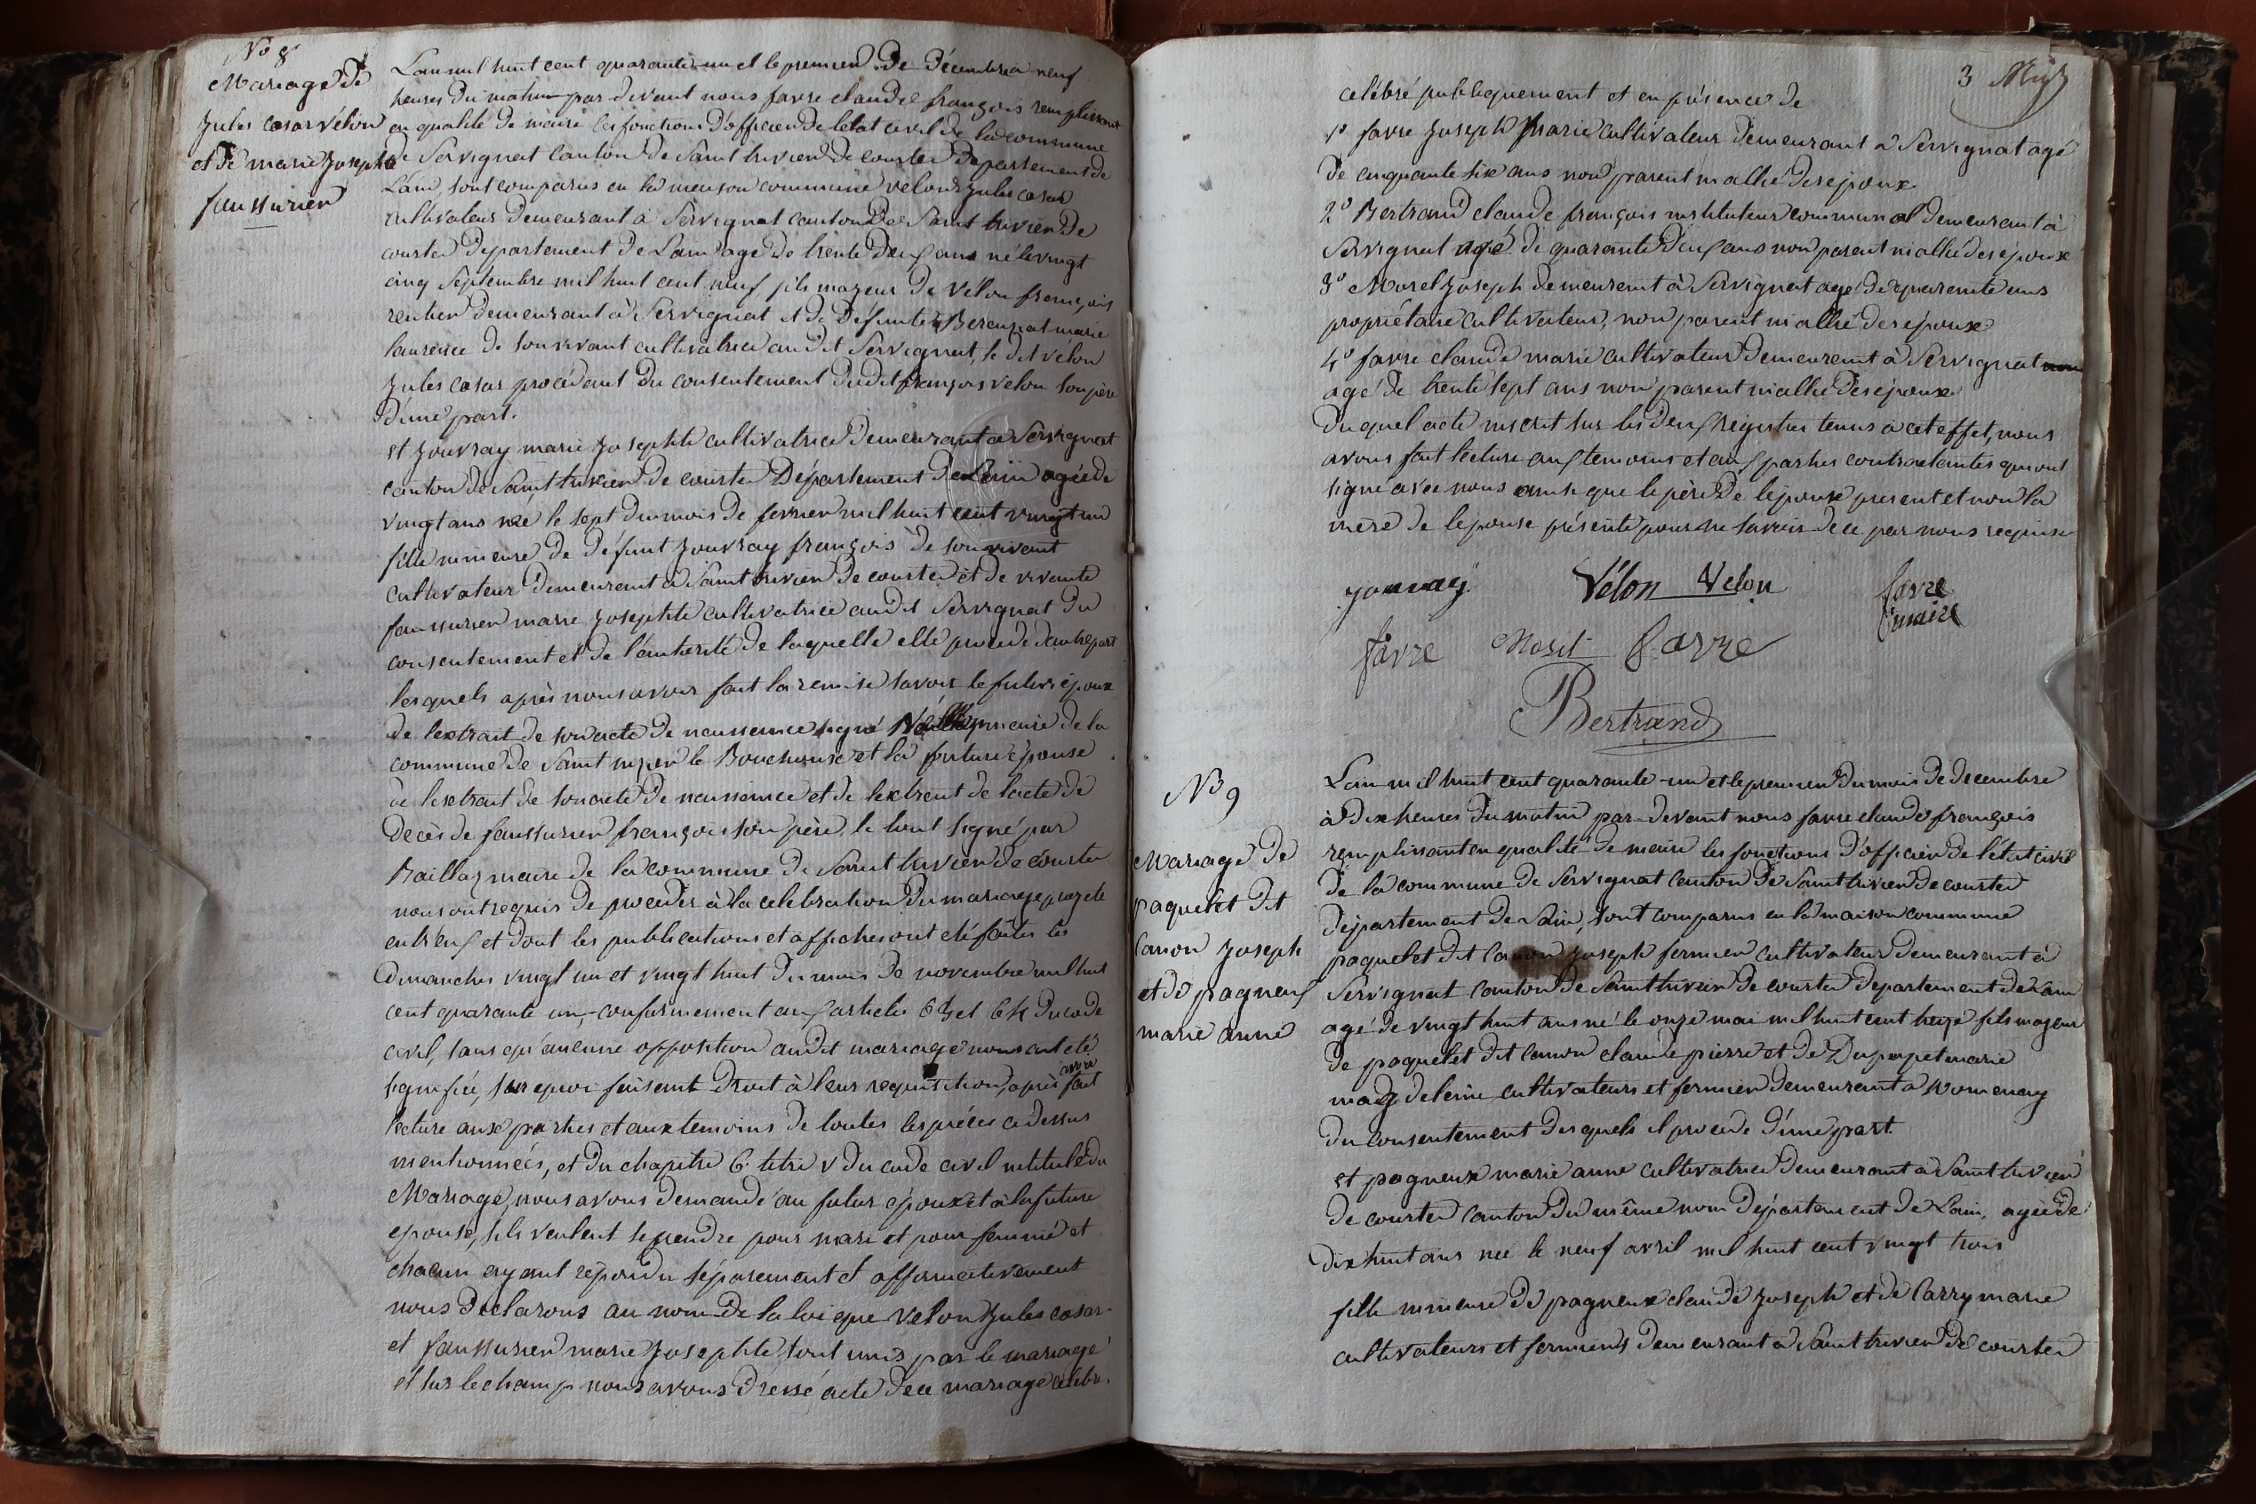 No 8
Mariage de
Jules cesar vélon
et de marie Josephte
faussurier
L'an mil huit cent quarante-un et le premier de Décembre a neuf
heures du matin par devant nous favre claude françois remplissant
en qualité de maire les fonctions d'officier de l'etat civil de la commune
de Servignat Canton de Saint trivier de courtes Departement de
L'ain, sont comparus en la maison commune velon Jules cesar
cultivateur demeurant à Servignat canton de Saint trivier de
courtes Departement de L'ain agé de trente deux ans né le vingt
cinq Septembre mil huit cent neuf fils majeur de Vélon françois
rentier demeurant à Servignat et de Defunte marie
laurence de son vivant cultivatrice audit Servignat, le dit vélon
Jules cesar procédant du consentement dudit françois velon son père
d'une part.
et Jouvray marie Josephte cultivatrice demeurant a Servignat
canton de Saint trivier de courtes Département de L'ain agée de
vingt ans née le sept du mois de fevrier mil huit cent vingt un
fille mineure de défunt Jouvray françois de son vivant
cultivateur demeurant à Saint trivier de courtes et de vivante
faussurier marie Josephte cultivatrice audit Servignat du
consentement et de l'autorité de laquelle elle procede d'autre part
lesquels après nous avoir fait la remise savoir le futur époux
de l'extrait de son acte de naissance signé maire de la
commune de Saint le Bouchoux et la future épouse
de l'extrait de son acte de naissance et de l'extrait de l'acte de
decès de faussurier françois son père, le tout signé par
Baillaz maire de la commune de Saint trivier de courtes
nous ont requis de proceder à la celebration du mariage projeté
entr'eux et dont les publications et affiches ont été faites les
dimanches vingt un et vingt huit du mois de novembre mil huit
cent quarante un, conformement aux articles 63 et 64 du code
civil, sans qu'aucune opposition audit mariage nous ait été
signifiée, sur quoi faisant droit à leur requisition, après avoir fait
lecture aux parties et aux temoins de toutes les pièces ci dessus
mentionnées, et du chapitre 6 titre V du code civil intitulé du
Mariage, nous avons demandé au futur époux et à la future
epouse, s'ils veulent se prendre pour mari et pour femme et
chacun ayant répondu séparement et affirmativement
nous declarons au nom de la loi que velon Jules cesar
et faussurier marie Josephte sont unis par le mariage
et sur le champ nous avons dressé acte de ce mariage célébré
3
celébré publiquement et en présence de
1º favre Joseph Marie cultivateur demeurant a Servignat agé
de cinquante six ans non parent ni allié des epoux
2º Bertrand claude françois instituteur communal demeurant à
Servignat agé de quarante deux ans non parent ni allié des epoux
3º Morel Joseph demeurant à Servignat agé de quarante ans
propriétaire cultivateur, non parent ni allié des époux
4º favre claude marie cultivateur demeurant à Servignat non
agé de trente sept ans non parent ni allié des époux
Duquel acte inscrit sur les deux registres tenus à cet effet, nous
avons fait lecture aux temoins et aux parties contractantes qui ont
signé avec nous ainsi que le père de l'époux present et non la
mere de l'epouse présente pour ne savoir de ce par nous requise
Jouvray Vélon Velon favre
maire
favre Morel favre
Bertrand
No 9
Mariage de
paquelet dit
Canon Joseph
et de pagneux
marie anne
L'an mil huit cent quarante-un et le premier du mois de decembre
à dix heures du matin par-devant nous favre claude françois
remplissant en qualité de maire les fonctions d'officier de l'état civil
de la commune de Servignat canton de Saint trivier de courtes
Département de L'ain, sont comparus en la maison commune
paquelet dit Canon Joseph fermier cultivateur demeurant à
Servignat canton de Saint trivier de courtes Departement de L'ain
agé de vingt huit ans né le onze mai mil huit cent treize fils majeur
de paquelet dit canon claude pierre et de Dupupet marie
magdeleine cultivateurs et fermiers demeurant a Romenay
du consentement desquels il procede d'une part.
et pagneux marie anne cultivatrice demeurant à Saint trivier
de courtes canton du même nom Département de L'ain, agée de
dix huit ans née le neuf avril mil huit cent vingt trois
fille mineure de pagneux claude Joseph et de Carry marie
cultivateurs et fermiers demeurant à Saint trivier de courtes